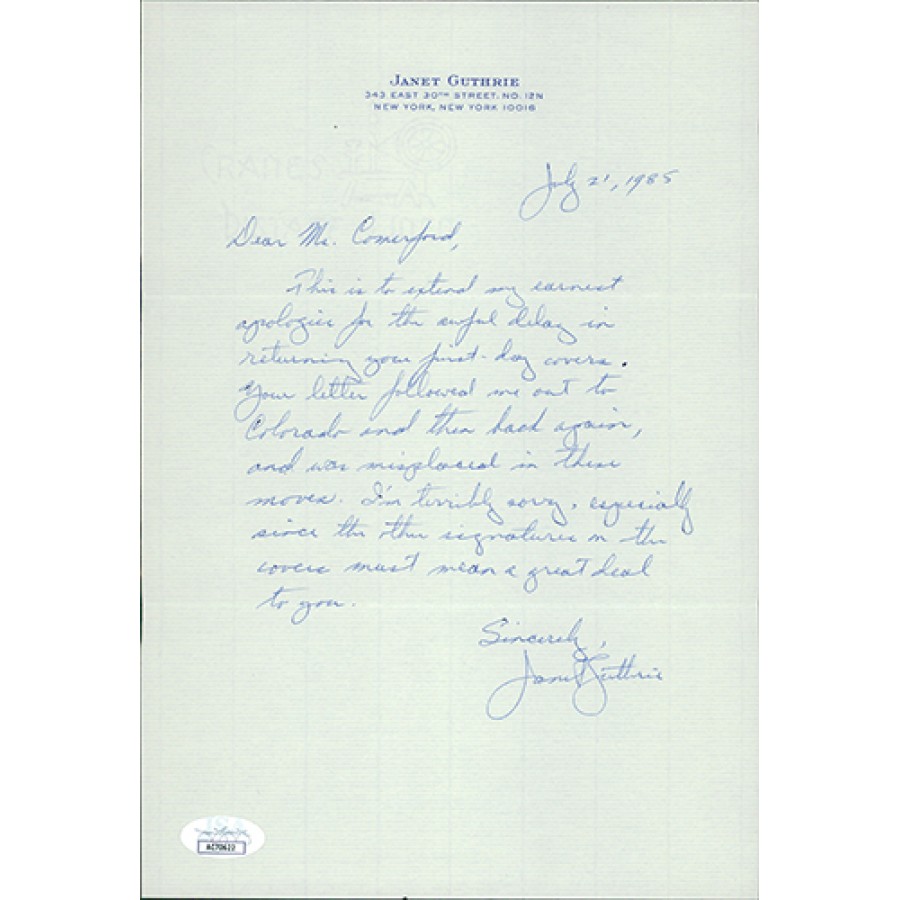 JANET GUTHRIE
343 EAST 30TH STREET, NO. 12N
NEW YORK, NEW YORK 10016
July 21, 1985
Dear Mr. Comerford,
This is to extend my earnest
apologies for the awful delay in
returning your first-day covers.
Your letter followed me out to
Colorado and then back again,
and was misplaced in these
moves. I'm terribly sorry, especially
since the other signatures on the
covers must mean a great deal
to you.
Sincerely,
Janet Guthrie
AC70622